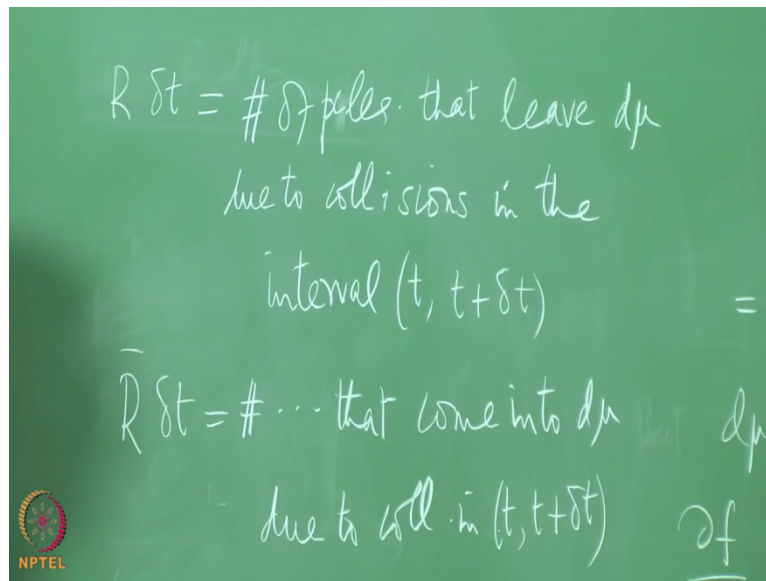 R δt = # of pcles. that leave dμ
due to collisions in the
interval (t, t+δt)
=
R̄ δt = # ... that come into dμ
dμ
due to coll. in (t, t+δt)
∂f
NPTEL